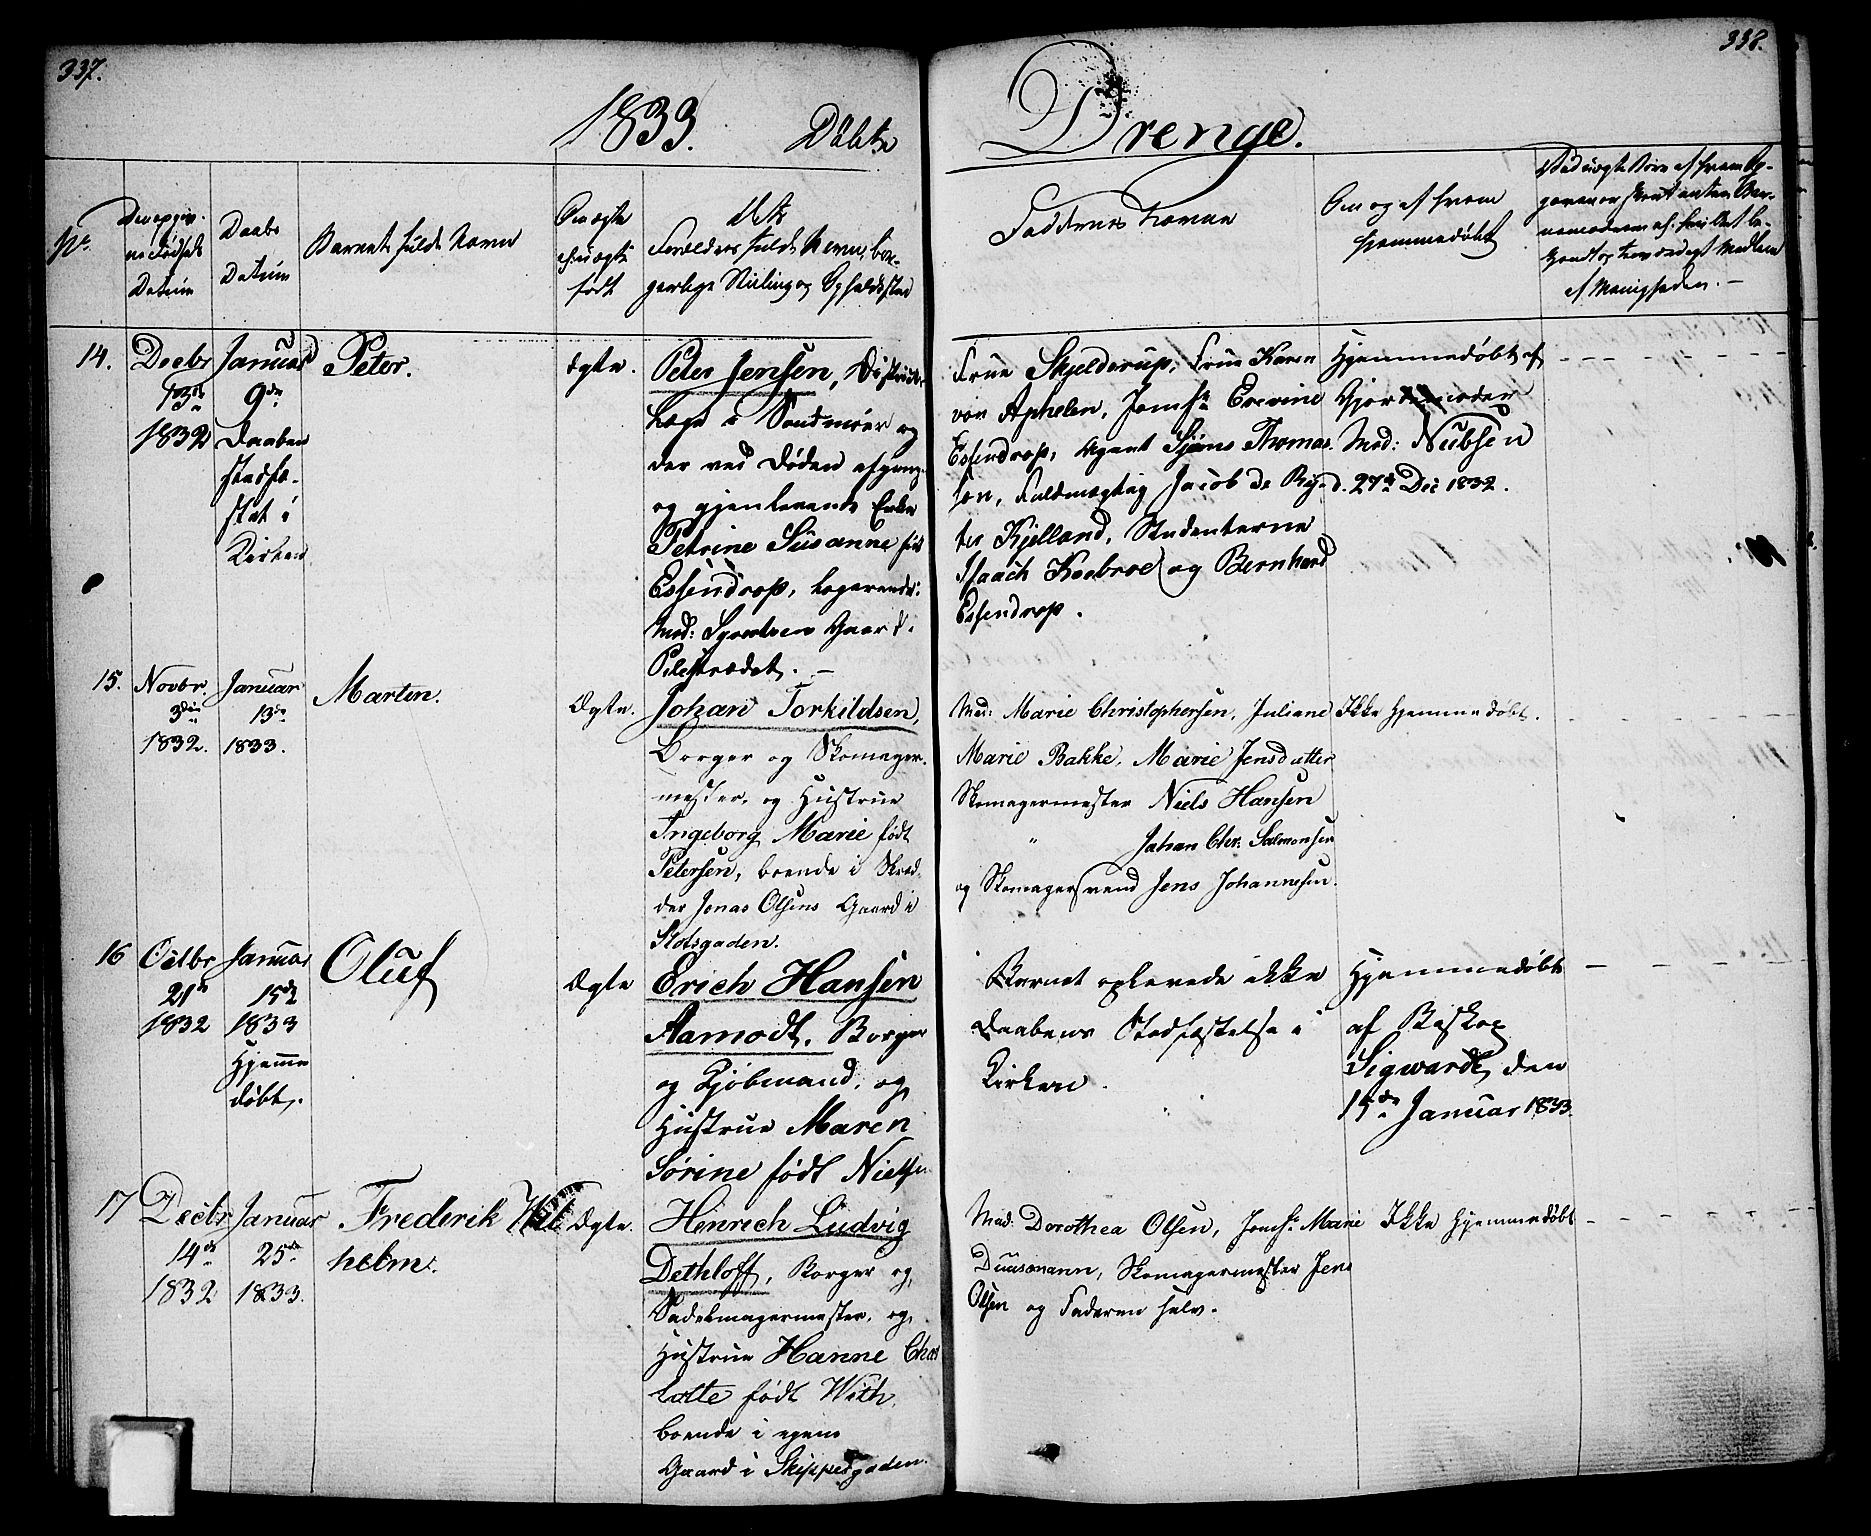 337.
338.
1833. Døbte
Drenge.
No.
Den opgiv-
ne Fødsels
Datum
Daabs
Datum
Barnets fulde Navn
Om ægte
el. uægte
født
Forældres fulde Navn, bor-
gerlige Stilling og Opholdssted
Faddernes Navne
Om og af hvem
hjemmedøbt
af Menigheden. —
14.
Decbr
13de
1832
Januar
9de
Daaben
stadfæ-
stet i
Kirken
Peter.
ægte.
Peter Jensen, Districts-
Læge i Søndmøer og
der ved Døden afgangen
og gjenlevende Enke
Petrine Susanne født
Essendrop, logerende i
Mad: Gaard i
Pilestrædet. —
Frue Skjelderup, Frue Karen
von Aphelen, Jomfr Severine
Essendrop, Agent Thomas
sen, Fuldmægtig Jacob de Ryt-
ter Kjelland, Studenterne
Isaach Koebroe og Bernhard
Essendrop.
Hjemmedøbt af
Gjordemoder
Mad: Nubsen
d. 27de Dec 1832.
15.
Novbr.
3die
1832.
Januar
13de
1833.
Marten.
Ægte.
Johan Torkildsen,
Borger og Skomager-
mester, og Hustrue
Ingeborg Marie født
Petersen, boende i Skræd-
der Jonas Olsens Gaard i
Slotsgaden.
Mad: Marie Christophersen, Juliane
Marie Bakke, Marie Jensdatter
Skomagermester Niels Hansen
" Johan Chr. Salmonsen
og Skomagersvend Jens Johannesen.
Ikke Hjemmedøbt.
16
Octbr
21de
1832
Januar
15de
1833
Hjemme
døbt.
Oluf
Ægte
Erich Hansen
Aamodt, Borger
og Kjøbmand, og
Hustrue Maren
Sørine født Nielsen
Barnet oplevede ikke
Daabens Stadfæstelse i
Kirken.
Hjemmedøbt
af Biskop
Sigwardt, den
15de Januar 1833.
17
Decbr
14de
1832
Januar
25de
1833.
Frederik Wil
helm.
Ægte.
Henrich Ludvig
Dethloff, Borger og
Sadelmagermester, og
Hustrue Hanne Char
lotte født With,
boende i egen
Gaard i Skippergaden.
Mad: Dorothea Olsen, Jomfr Marie
Duusmann, Skomagermester Jens
Olsen og Faderen selv.
Ikke Hjemmedøbt